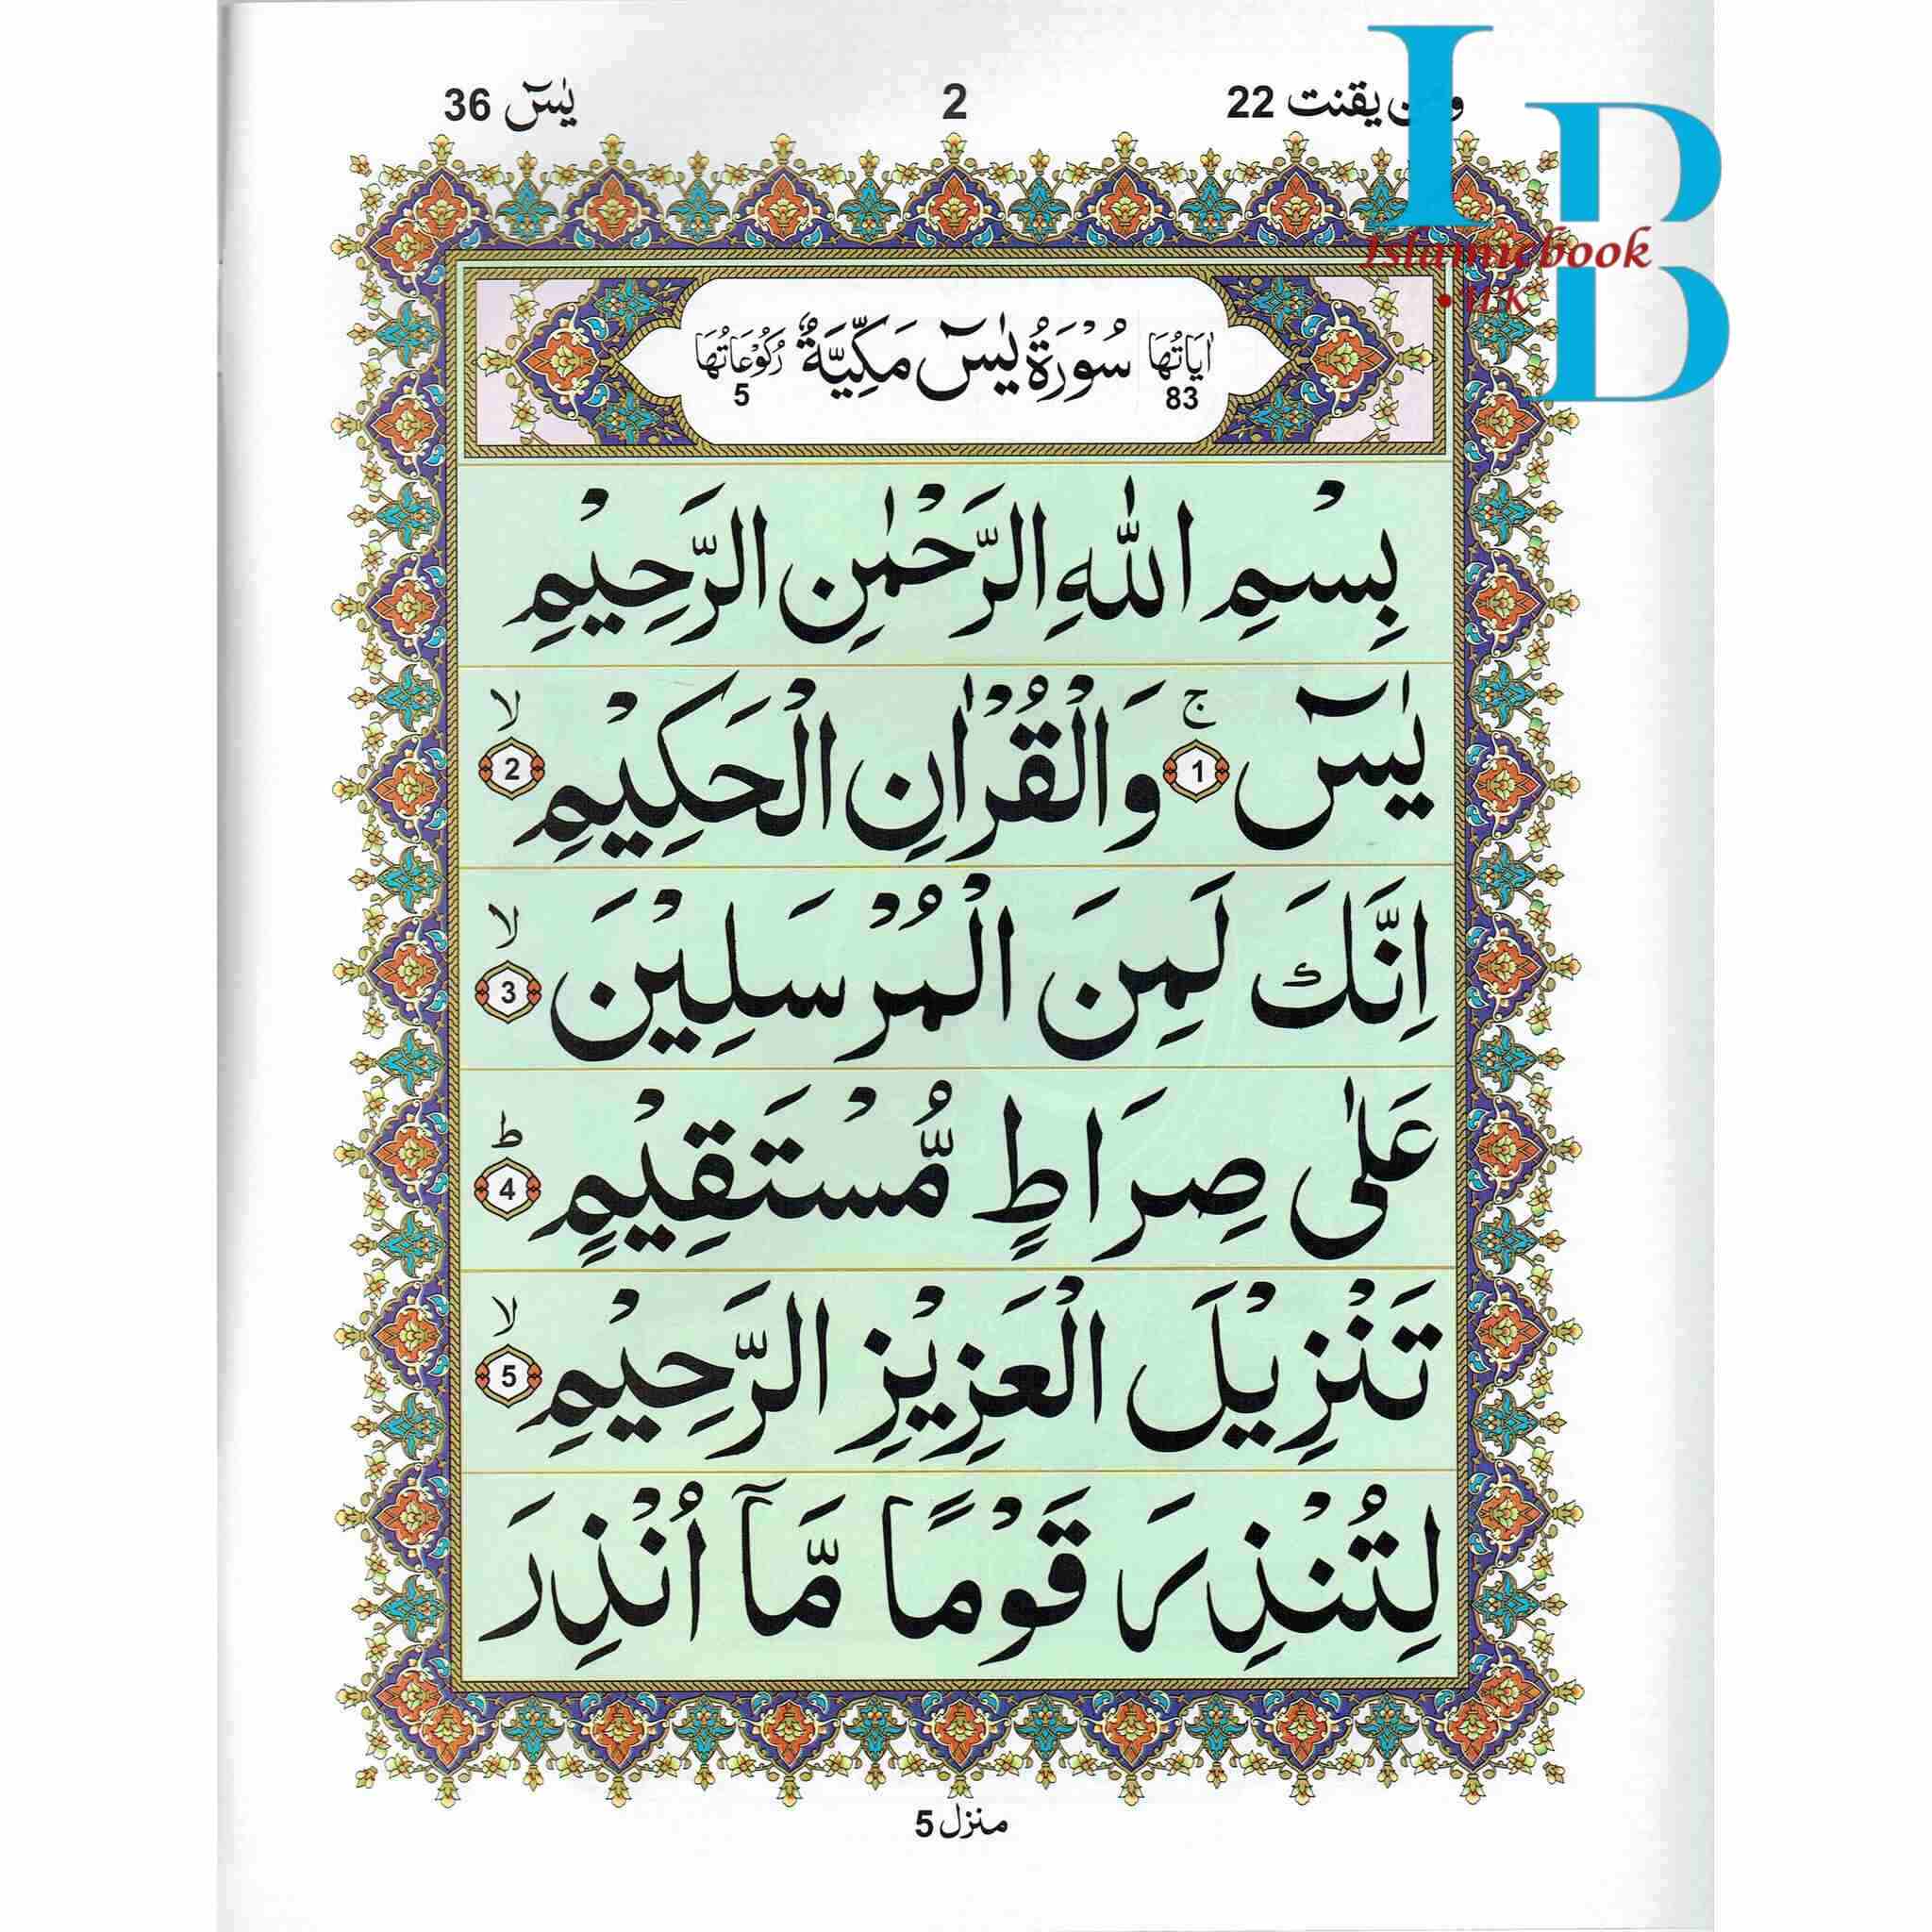 يٰسٓ 36 2 يقنت 22
I B D
Islamicbook
.UK
اٰيَاتُهَا 83 سُوْرَةُ يٰسٓ مَكِّيَّةٌ رُكُوْعَاتُهَا 5
بِسْمِ اللّٰهِ الرَّحْمٰنِ الرَّحِيْمِ
يٰسٓ ج 1 وَالْقُرْاٰنِ الْحَكِيْمِ لا 2
اِنَّكَ لَمِنَ الْمُرْسَلِيْنَ لا 3
عَلٰى صِرَاطٍ مُّسْتَقِيْمٍ ط 4
تَنْزِيْلَ الْعَزِيْزِ الرَّحِيْمِ لا 5
لِتُنْذِرَ قَوْمًا مَّاۤ اُنْذِرَ
منزل 5